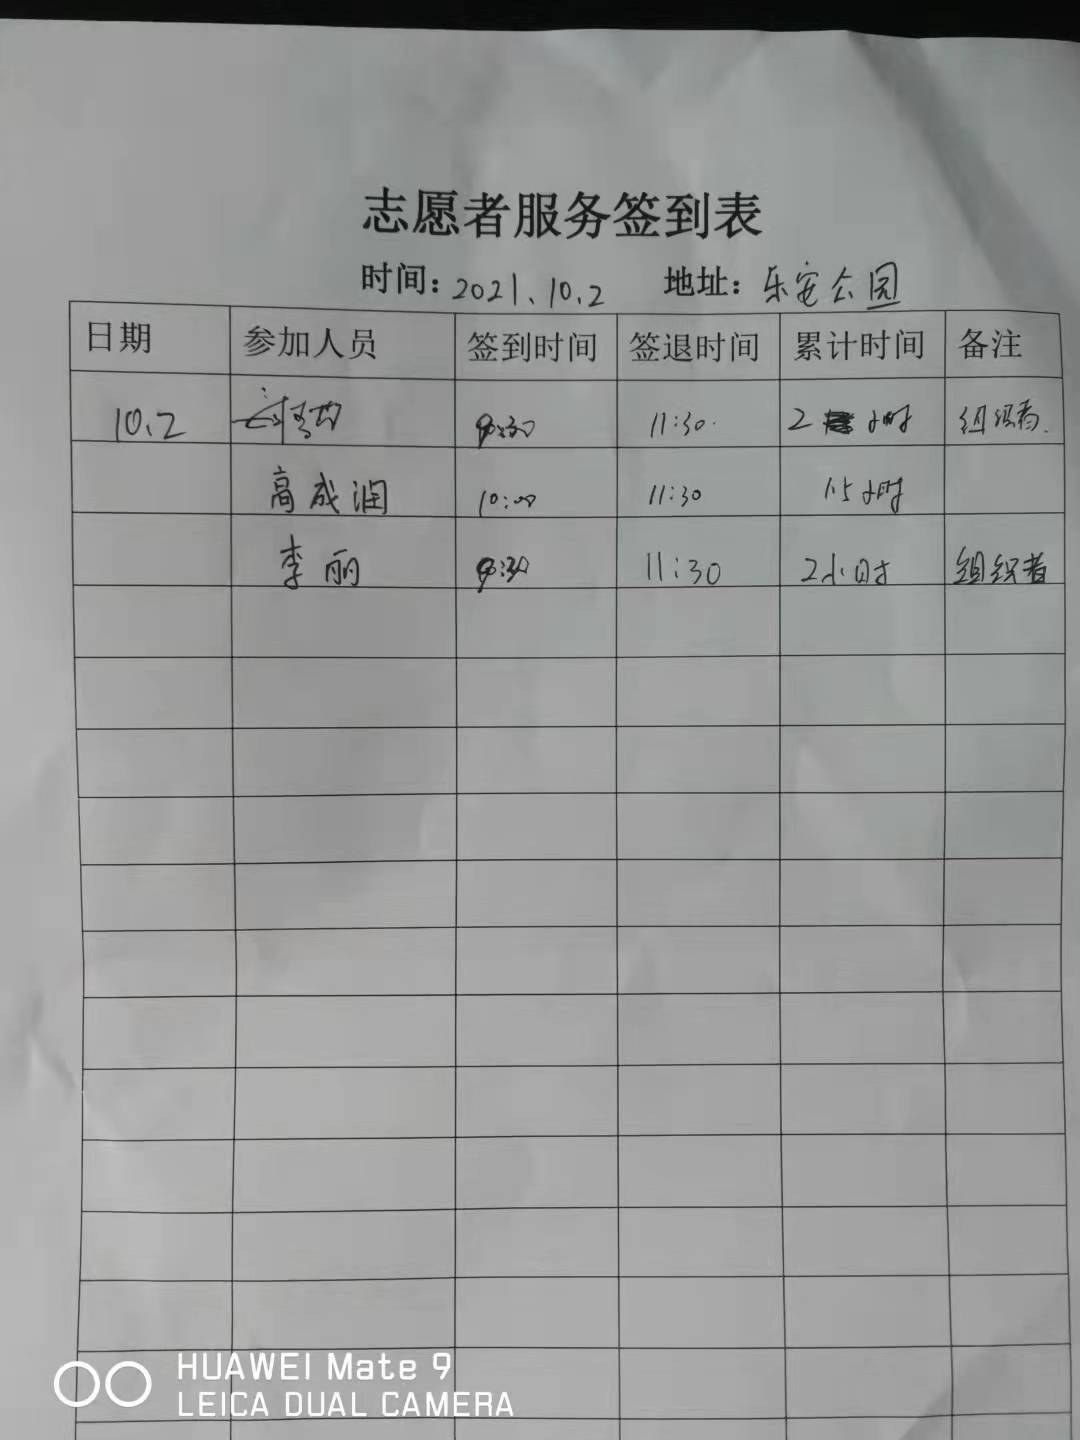 志愿者服务签到表
时间: 2021.10.2 地址: 乐安公园
日期 参加人员 签到时间 签退时间 累计时间 备注
10.2 9:30 11:30 2小时 组织者
高成润 10:00 11:30 1.5小时
李丽 9:30 11:30 2小时 组织者
HUAWEI Mate 9
LEICA DUAL CAMERA